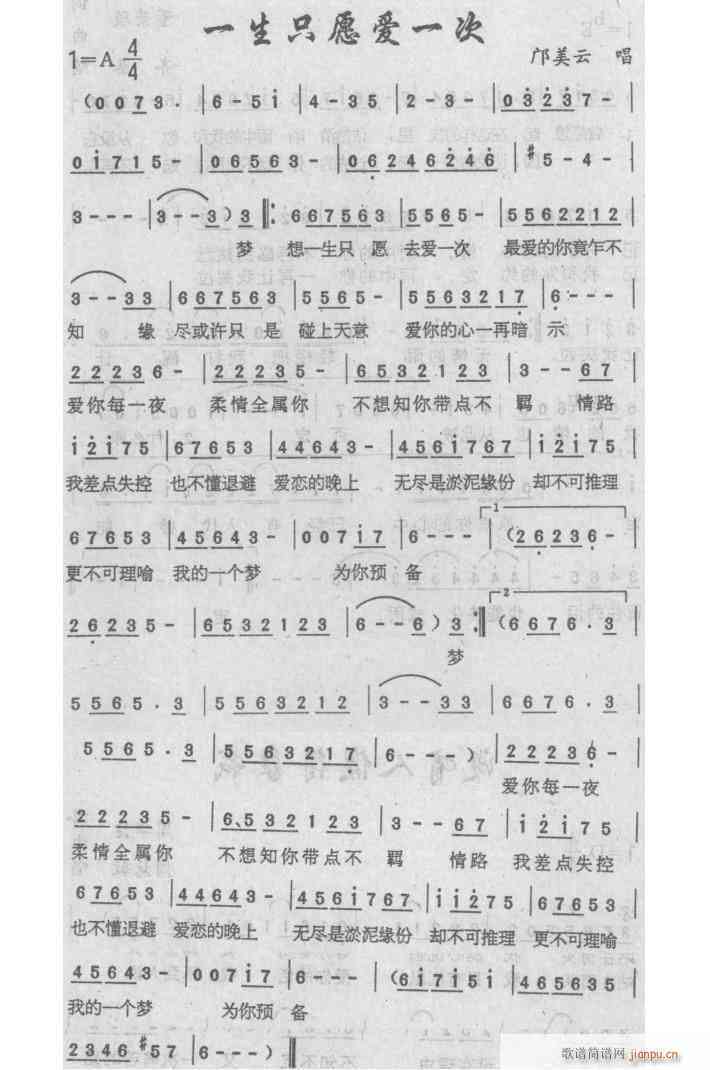 一生只愿爱一次
1=A 4/4 邝美云 唱
(0 0 7 3 . | 6 - 5 i | 4 - 3 5 | 2 - 3 - | 0 3 2 3 7 -
0 i 7 1 5 - | 0 6 5 6 3 - | 0 6 2 4 6 2 4 6 | #5 - 4 - |
3 - - - | 3 - - 3 ) 3 ‖: 6 6 7 5 6 3 | 5 5 6 5 - | 5 5 6 2 2 1 2
梦 想一生只 愿 去爱一次 最爱的你竟乍不
3 - - 3 3 | 6 6 7 5 6 3 | 5 5 6 5 - | 5 5 6 3 2 1 7 | 6 - - -
知 缘 尽或许只 是 碰上天意 爱你的心一再暗 示
2 2 2 3 6 - | 2 2 2 3 5 - | 6 5 3 2 1 2 3 | 3 - - 6 7 |
爱你每一夜 柔情全属你 不想知你带点不 羁 情路
i 2 i 7 5 | 6 7 6 5 3 | 4 4 6 4 3 - | 4 5 6 i 7 6 7 | i 2 i 7 5
我差点失控 也不懂退避 爱恋的晚上 无尽是淤泥缘份 却不可推理
6 7 6 5 3 | 4 5 6 4 3 - | 0 0 7 i 7 | 6 - - - | 1 (2 6 2 3 6 -
更不可理喻 我的一个梦 为你预 备
2 6 2 3 5 - | 6 5 3 2 1 2 3 | 6 - - 6 ) 3 :‖ 2 (6 6 7 6 . 3
梦
5 5 6 5 . 3 | 5 5 6 3 2 1 2 | 3 - - 3 3 | 6 6 7 6 . 3
5 5 6 5 . 3 | 5 5 6 3 2 1 7 | 6 - - - ) | 2 2 2 3 6 -
爱你每一夜
2 2 2 3 5 - | 6 5 3 2 1 2 3 | 3 - - 6 7 | i 2 i 7 5
柔情全属你 不想知你带点不 羁 情路 我差点失控
6 7 6 5 3 | 4 4 6 4 3 - | 4 5 6 i 7 6 7 | i i 2 7 5 | 6 7 6 5 3
也不懂退避 爱恋的晚上 无尽是淤泥缘份 却不可推理 更不可理喻
4 5 6 4 3 - | 0 0 7 i 7 | 6 - - - | (6 i 7 i 5 i | 4 6 5 6 3 5
我的一个梦 为你预 备
2 3 4 6 #5 7 | 6 - - - ) ‖
歌谱简谱网
jianpu.cn